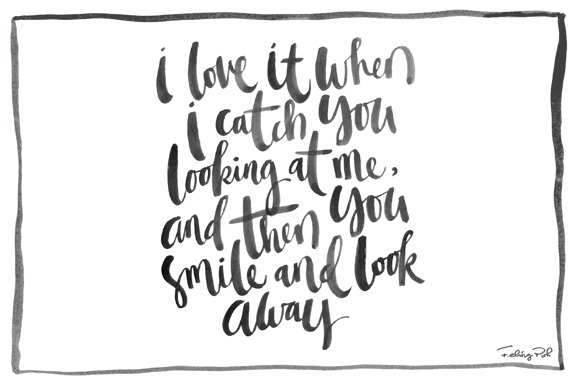 i love it when
i catch you
looking at me,
and then you
smile and look
away